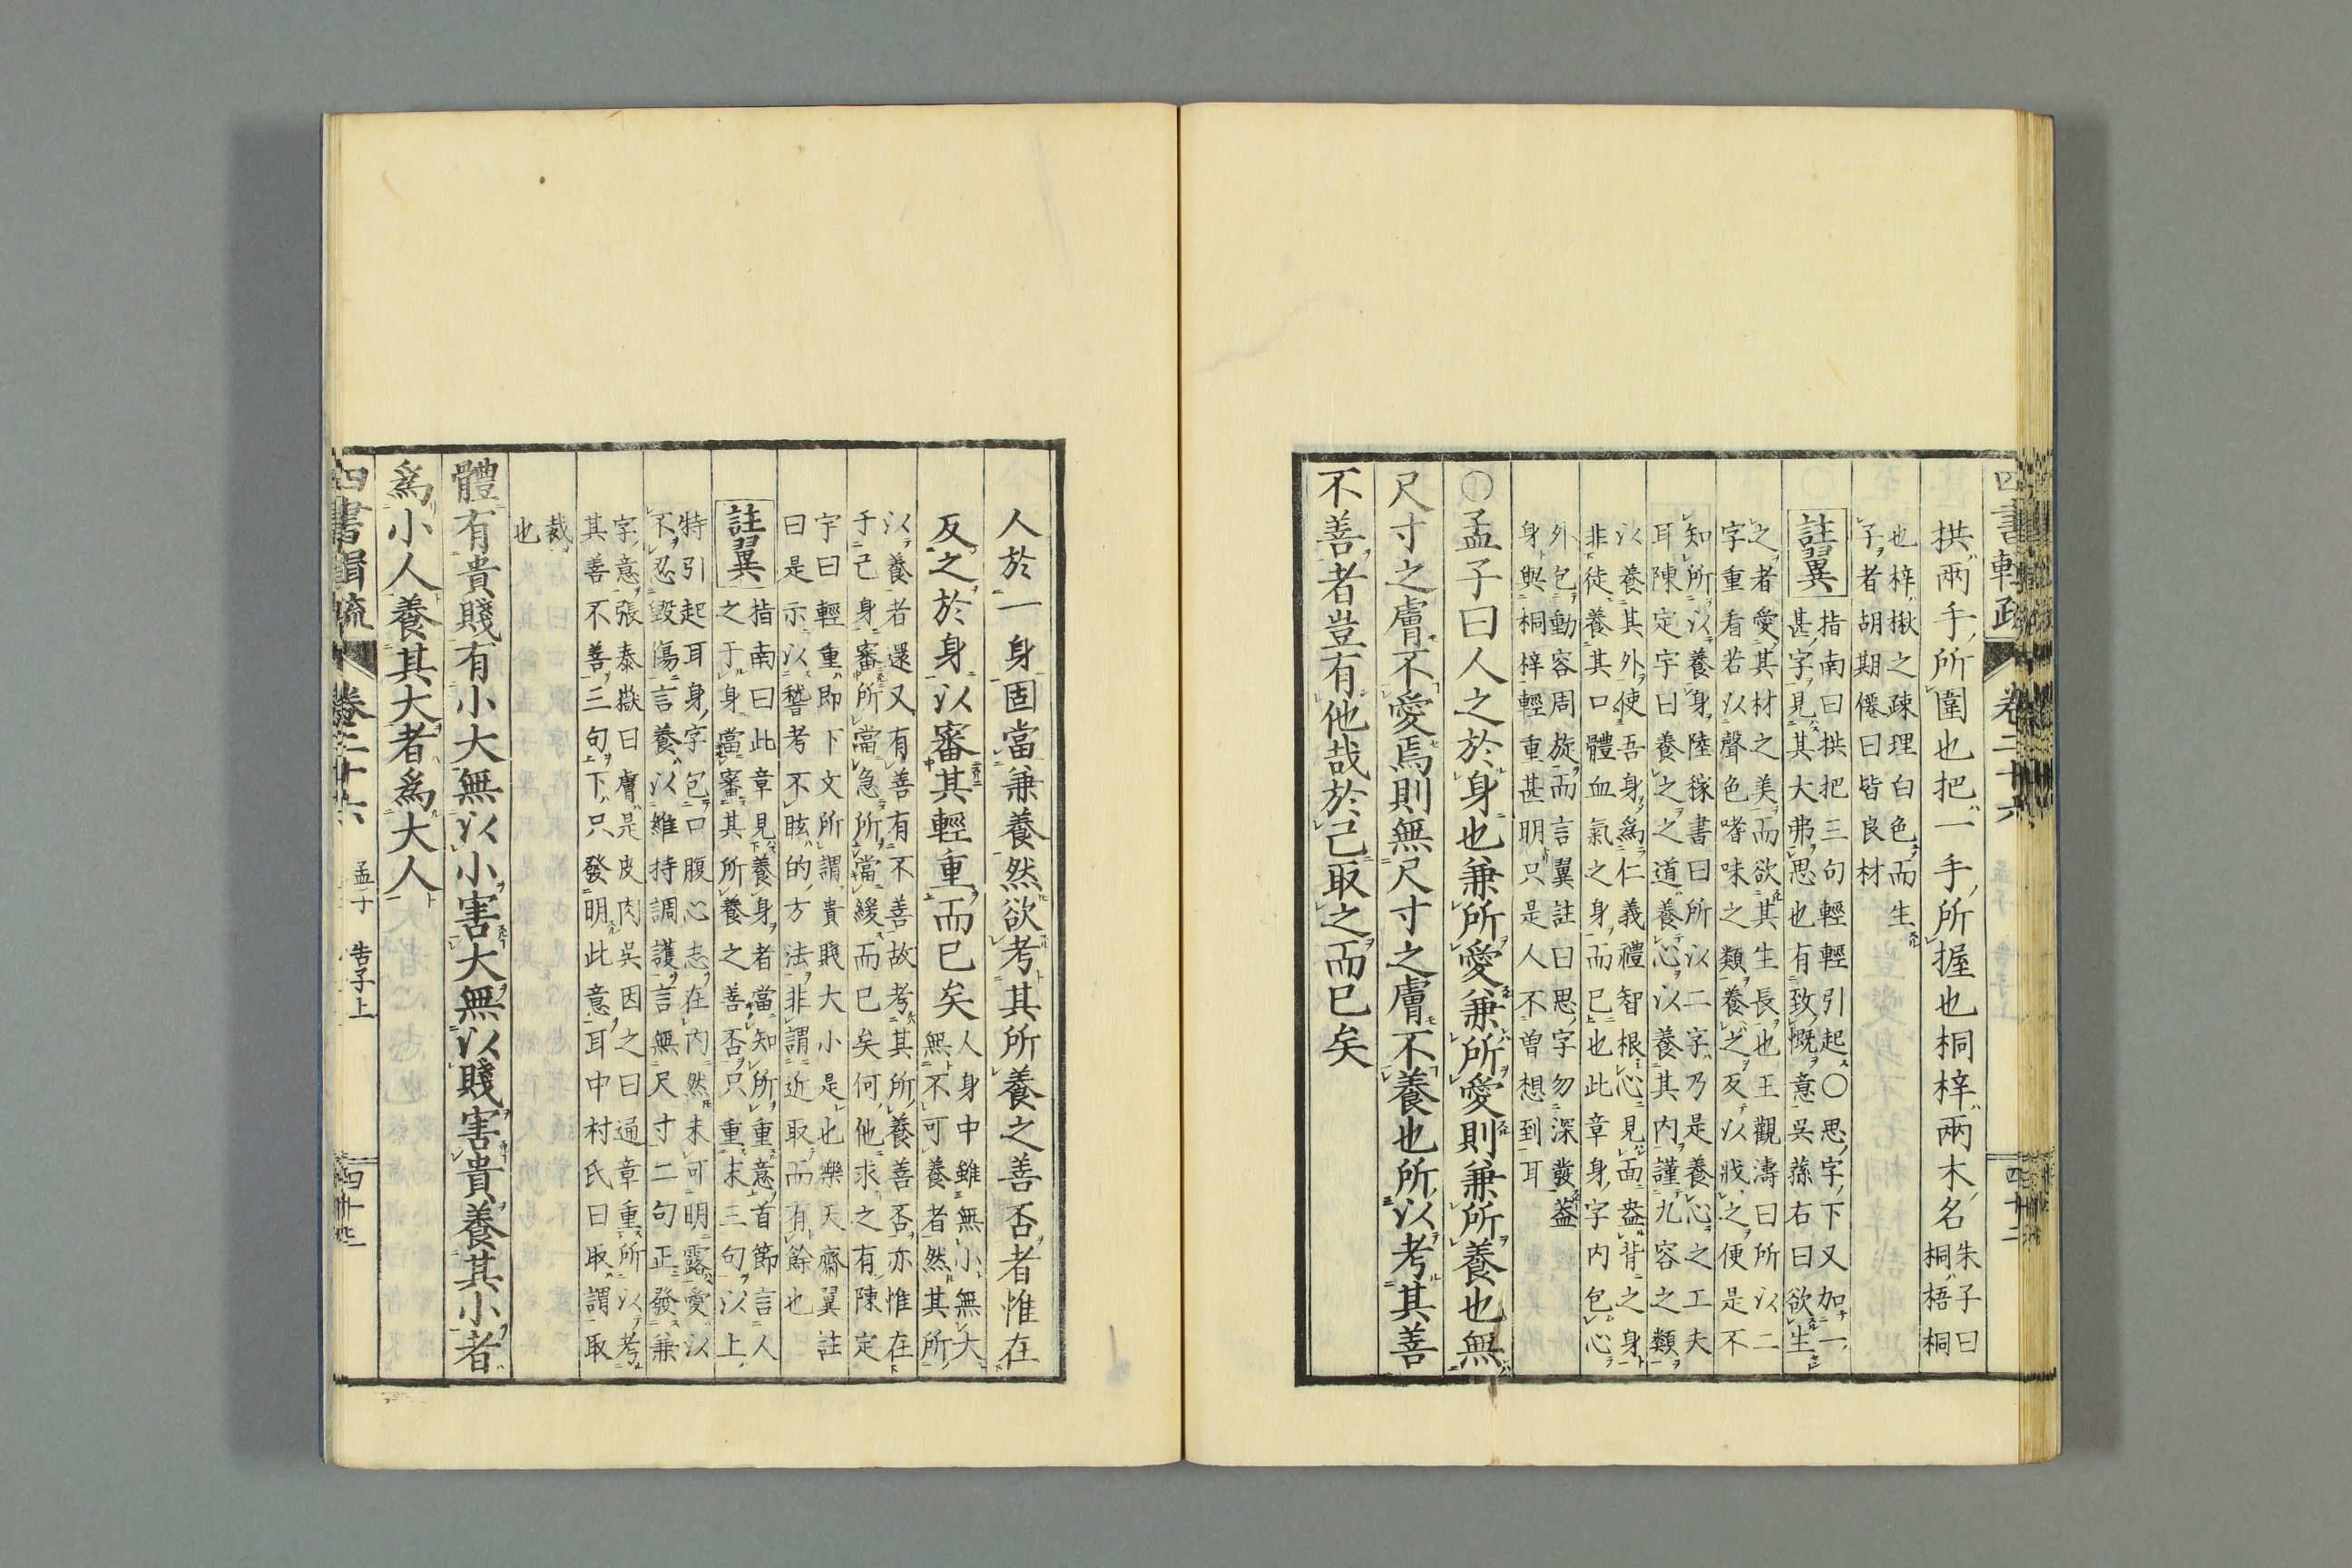 拱兩手所圍也把一手所握也桐梓兩木名朱子曰
桐梧桐
也梓楸之疎理白色而生
子者胡期僊曰皆良材
註翼
指南曰拱把三句輕輕引起〇思字下又加一
甚字見其大弗思也有致慨意吳蓀右曰欲生
之者愛其材之美而欲其生長也王觀濤曰所以二
字重看若以聲色嗜味之類養之反以戕之便是不
知所以養身陸稼書曰所以二字乃是養心之工夫
耳陳定宇曰養之之道養心以養其內謹九容之類
以養其外使吾身爲仁義禮智根心見面盎背之身
非徒養其口體血氣之身而已也此章身字內包心
外包動容周旋而言翼註曰思字勿深發蓋
身與桐梓輕重甚明只是人不曾想到耳
〇孟子曰人之於身也兼所愛兼所愛則兼所養也無
尺寸之膚不愛焉則無尺寸之膚不養也所以考其善
不善者豈有他哉於己取之而已矣
人於一身固當兼養然欲考其所養之善否者惟在
反之於身以審其輕重而已矣人身中雖無小無大
無不可養者然其所
以養者還又有善有不善故考其所養善否亦惟在
于己身審所當急所當緩而已矣何他求之有陳定
宇曰輕重即下文所謂貴賤大小是也樂天齋翼註
曰是示以稽考不眩的方法非謂近取而有餘也
註翼
指南曰此章見養身者當知所重意首節言人
之于身當審其所養之善否只重末三句以上
特引起耳身字包口腹心志在內然未可明露愛以
不忍毀傷言養以維持調護言無尺寸二句正發兼
字意張泰嶽曰膚是皮肉吳因之曰通章重所以考
其善不善三句下只發明此意耳中村氏曰取謂取
裁
也
體有貴賤有小大無以小害大無以賤害貴養其小者
爲小人養其大者爲大人
四書輯疏
卷二十六
孟子
告子上
卷二十六
四十二